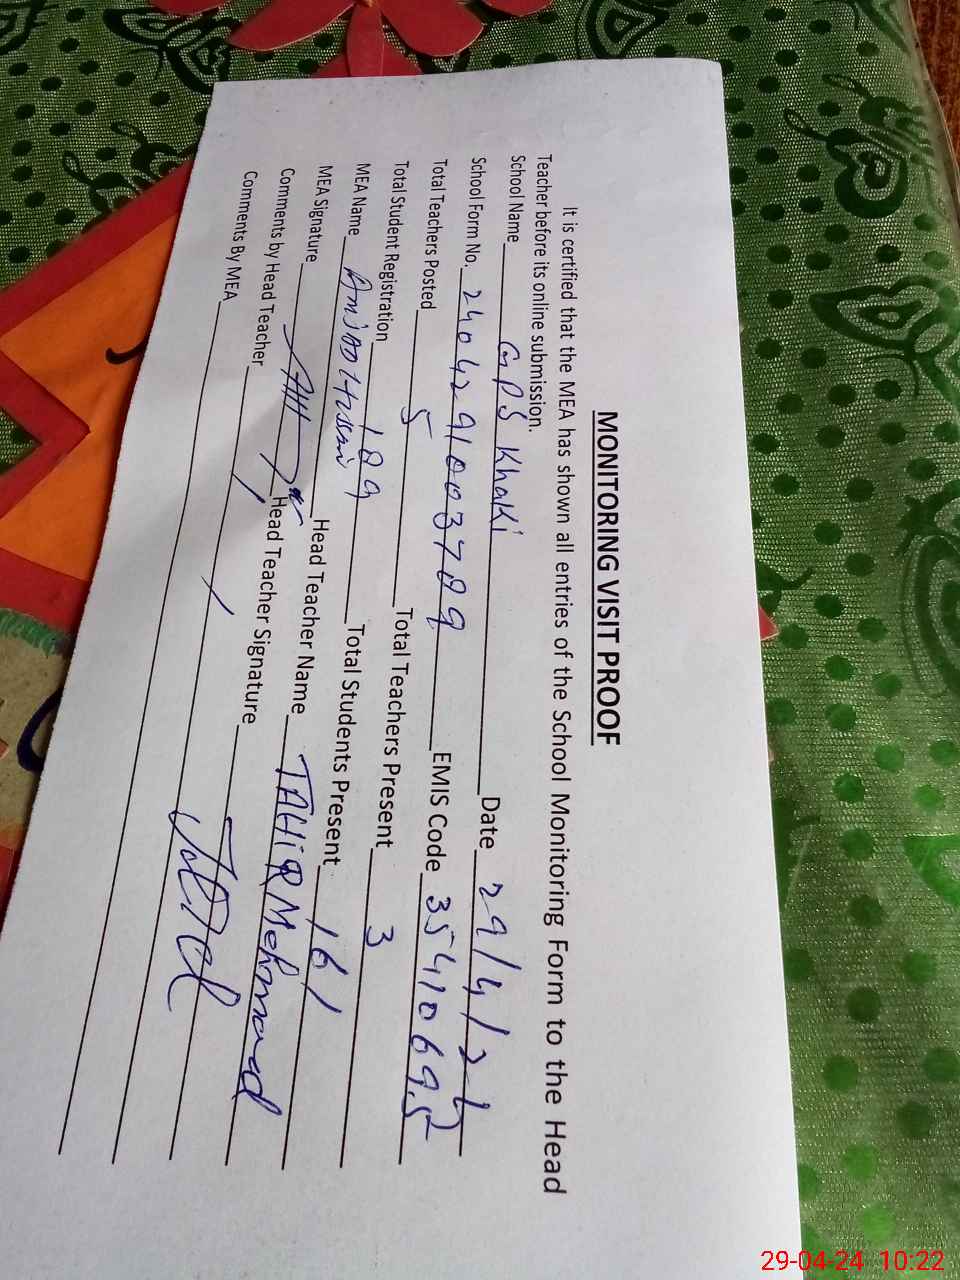 MONITORING VISIT PROOF
It is certified that the MEA has shown all entries of the School Monitoring Form to the Head
Teacher before its online submission.
School Name GPS Khaki Date 29/4/24
School Form No. 2404291003789 EMIS Code 35410695
Total Teachers Posted 5 Total Teachers Present 3
Total Student Registration 189 Total Students Present 161
MEA Name Amjad Hussain Head Teacher Name TAHIR Mehmood
MEA Signature Head Teacher Signature
Comments by Head Teacher
Comments By MEA
29-04-24 10:22